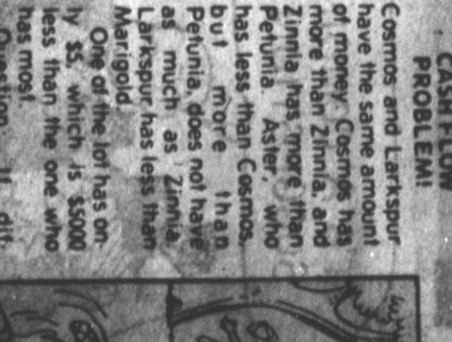 CASH FLOW
PROBLEM!
Cosmos and Larkspur
have the same amount
of money. Cosmos has
more than Zinnia, and
Zinnia has more than
Petunia. Aster, who
has less than Cosmos,
but more than
Petunia, does not have
as much as Zinnia.
Larkspur has less than
Marigold.
One of the lot has on-
ly $5, which is $5000
less than the one who
has most.
Question: If dif-